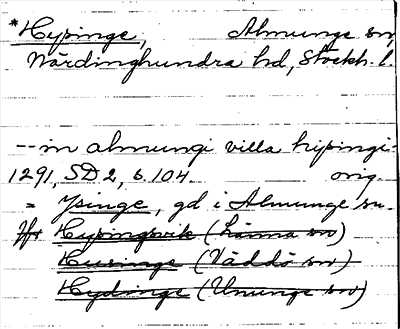 *Hypinge, Almunge sn,
Närdinghundra hd, Stockh. l.
-- in almungi villa hipingi
1291, SD 2, s. 104 orig.
= Ysinge, gd i Almunge sn.
Jfr Hypingsvik (Länna sn)
Husinge (Väddö sn)
Hydinge (Ununge sn)